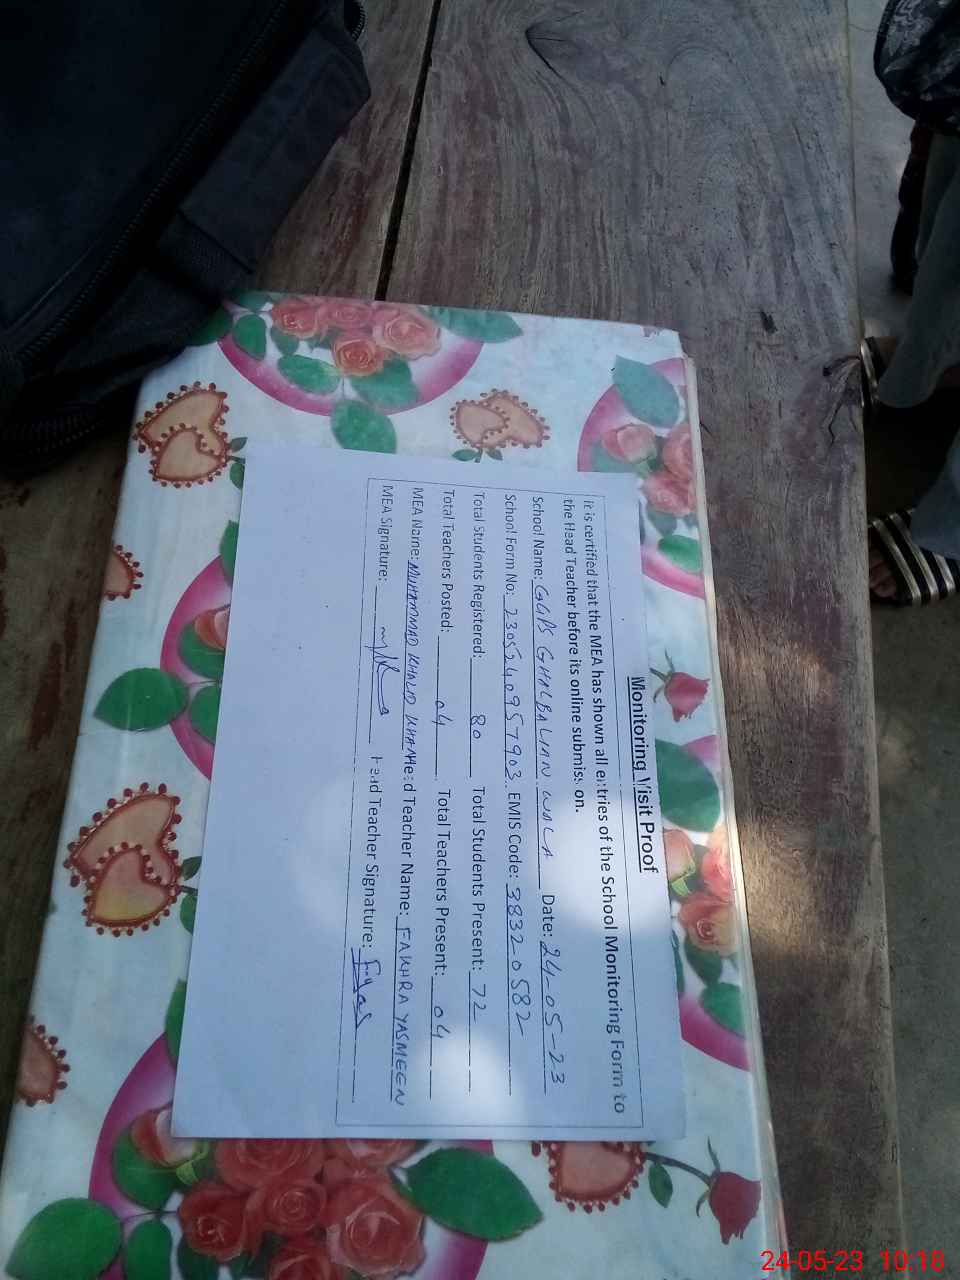 Monitoring Visit Proof
It is certified that the MEA has shown all entries of the School Monitoring Form to
the Head Teacher before its online submission.
School Name: GGPS GHALBALIAN WALA Date: 24-05-23
School Form No: 2305240957903 EMIS Code: 38320582
Total Students Registered: 80 Total Students Present: 72
Total Teachers Posted: 04 Total Teachers Present: 04
MEA Name: MUHAMMAD KHALID KHAN Head Teacher Name: FAKHRA YASMEEN
MEA Signature: Head Teacher Signature:
24-05-23 10:18